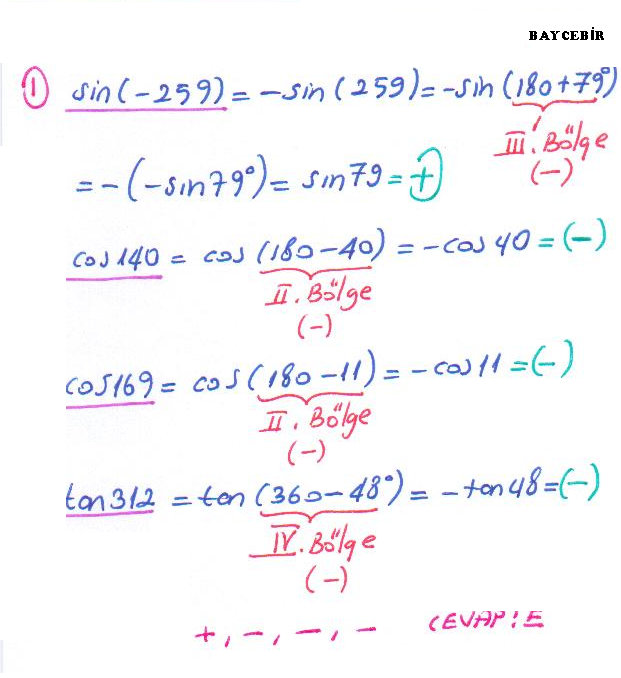 BAYCEBİR
① sin(-259) = -sin(259) = -sin(180+79°)
III. Bölge
(-)
= -(-sin79°) = sin79 = +
cos140 = cos(180-40) = -cos40 = (-)
II. Bölge
(-)
cos169 = cos(180-11) = -cos11 = (-)
II. Bölge
(-)
tan312 = tan(360-48°) = -tan48 = (-)
IV. Bölge
(-)
+, -, -, - CEVAP: E